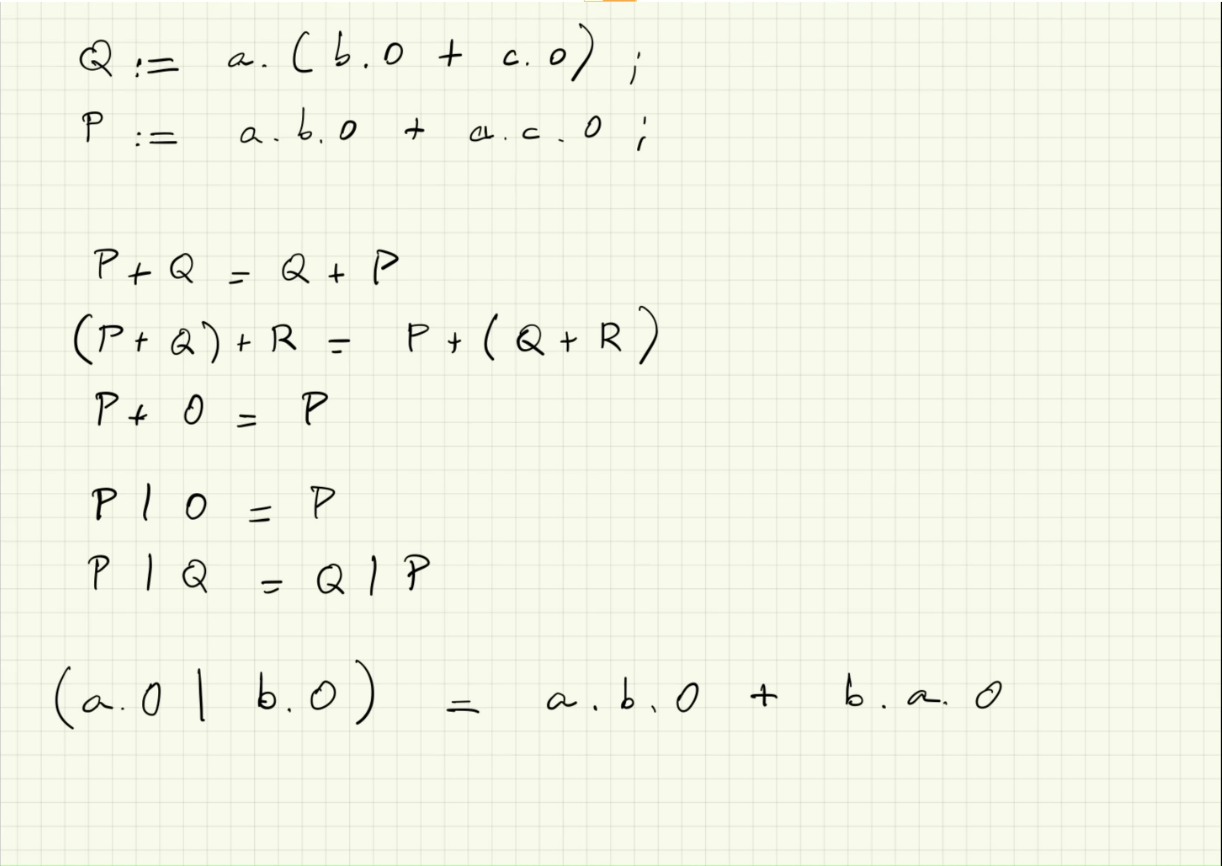 Q := a. ( b.0 + c.0) ;
P := a.b.0 + a.c.0 ;
P + Q = Q + P
(P + Q) + R = P + ( Q + R )
P + 0 = P
P | 0 = P
P | Q = Q | P
(a.0 | b.0) = a.b.0 + b.a.0